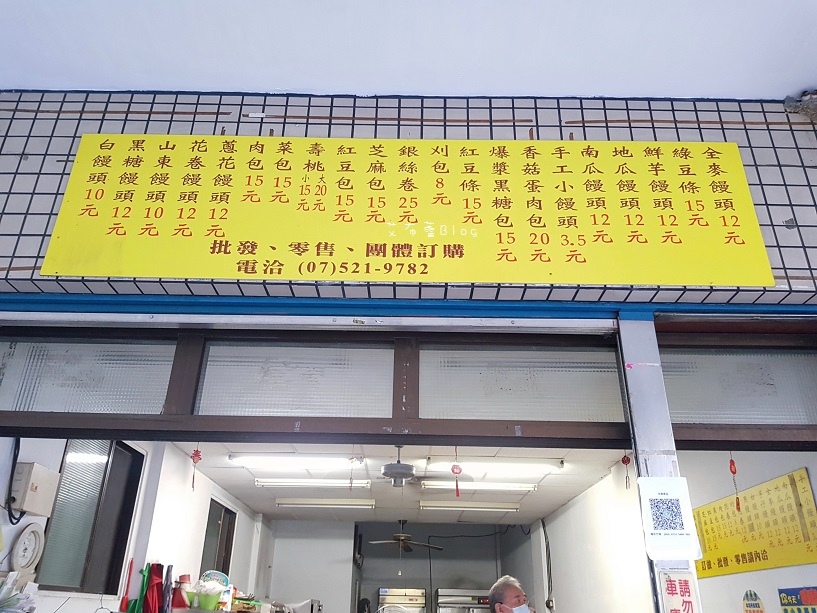 白饅頭10元
黑糖饅頭12元
山東饅頭10元
花卷饅頭12元
蔥花饅頭12元
肉包15元
菜包15元
壽桃 大20元 小15元
紅豆包15元
芝麻包15元
銀絲卷25元
刈包8元
紅豆條15元
爆漿黑糖包15元
香菇蛋肉包20元
手工小饅頭3.5元
南瓜饅頭12元
地瓜饅頭12元
鮮芋饅頭12元
綠豆條15元
全麥饅頭12元
批發、零售、團體訂購
電洽 (07)521-9782
訂做、批發、零售請內洽
請勿
車